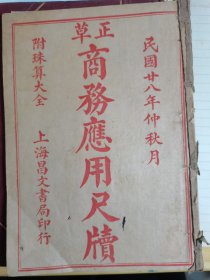 民國廿八年仲秋月
正草
商務應用尺牘
附珠算大全
上海昌文書局印行